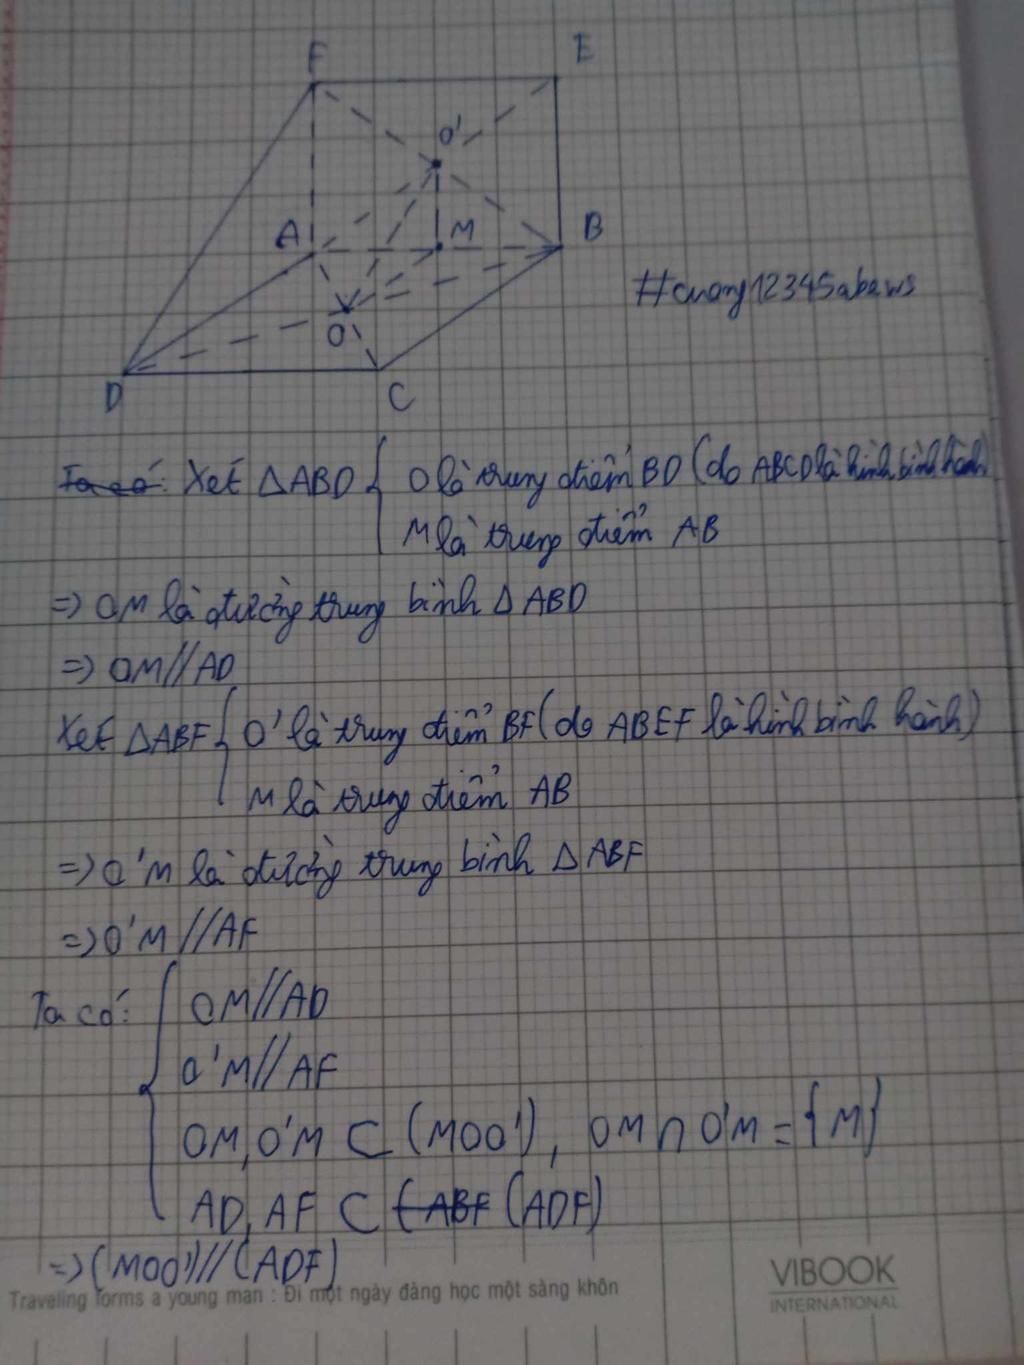 F
E
O'
A
M
B
#cuong12345abaws
O
D
C
Ta có: Xét ΔABD { O là trung điểm BD (do ABCD là hình bình hành)
M là trung điểm AB
=> OM là đường trung bình Δ ABD
=> OM//AD
Xét ΔABF { O' là trung điểm BF (do ABEF là hình bình hành)
M là trung điểm AB
=> O'M là đường trung bình Δ ABF
=> O'M //AF
Ta có: { OM//AD
O'M//AF
OM, O'M ⊂ (MOO'), OM ∩ O'M = {M}
AD, AF ⊂ (ABF (ADF)
=> (MOO')//(ADF)
Traveling forms a young man : Đi một ngày đàng học một sàng khôn
VIBOOK
INTERNATIONAL